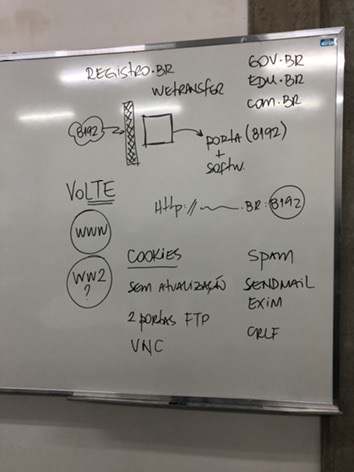 REGISTRO.BR
WETRANSFER
GOV.BR
EDU.BR
COM.BR
8192
PORTA (8192)
+
SOFTW.
VOLTE
HTTP:// .BR:8192
WWW
WW2
?
COOKIES
SEM ATUALIZAÇÃO
2 PORTAS FTP
VNC
SPAM
SENDMAIL
EXIM
CRLF